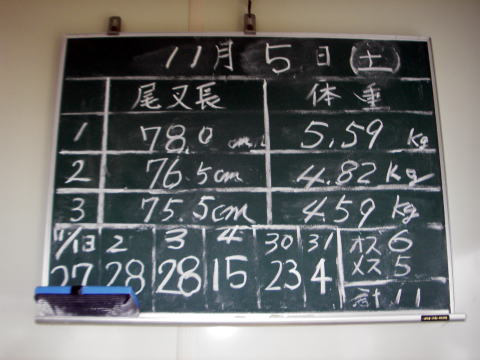 11月5日(土)
尾叉長 体重
1 78.0 cm 5.59 kg
2 76.5cm 4.82 kg
3 75.5cm 4.59 kg
2 3 4 30 31 オス 6
27 28 28 15 23 4 メス 5
計 11